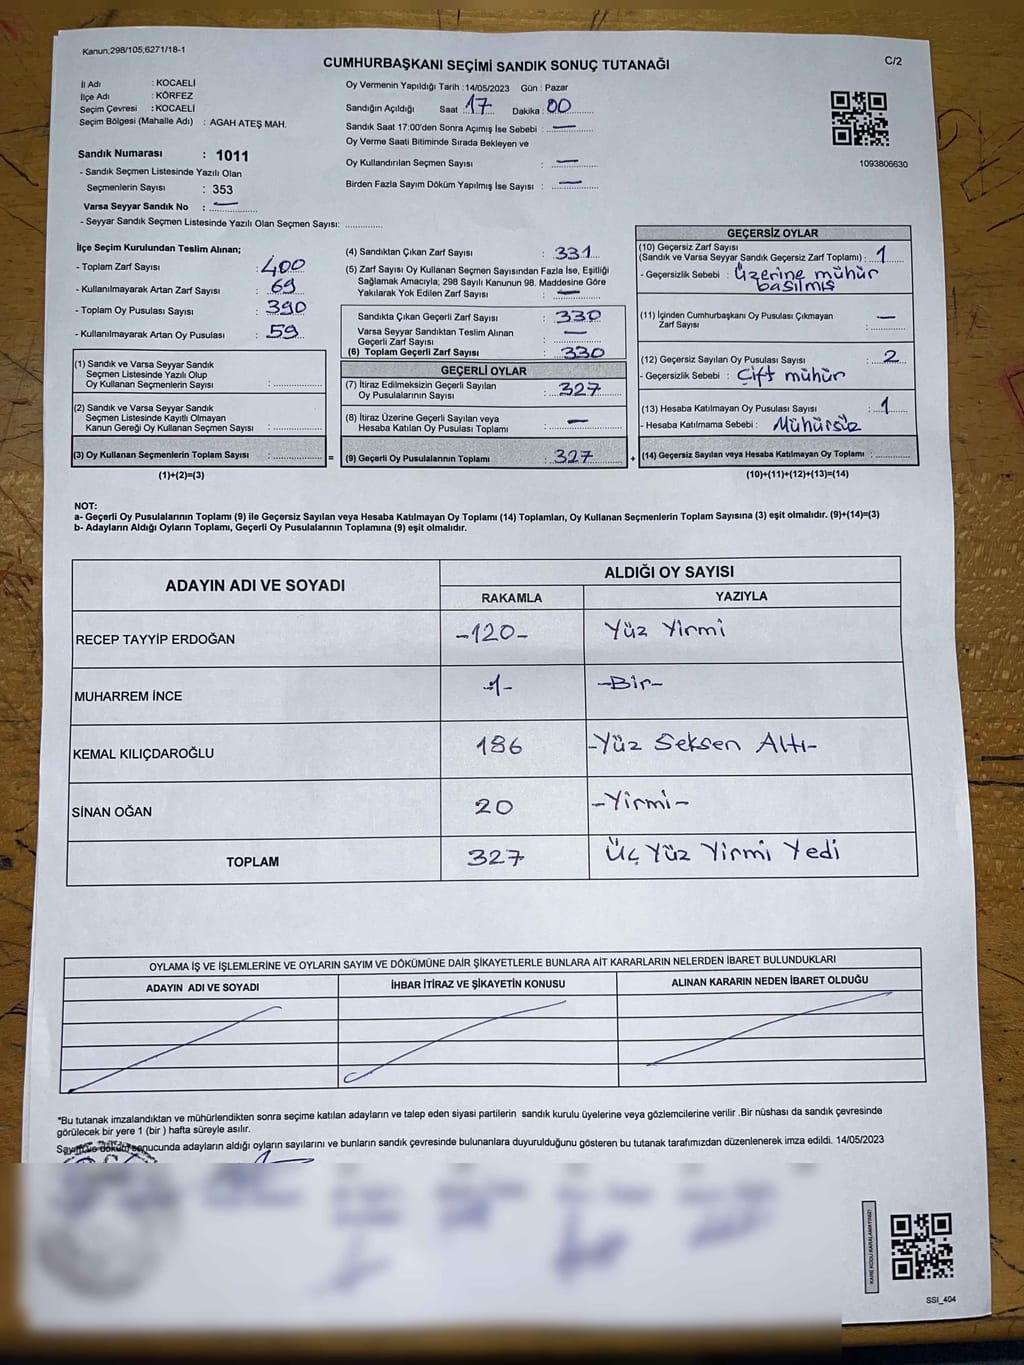 Kanun;298/105;6271/18-1
C/2
CUMHURBAŞKANI SEÇİMİ SANDIK SONUÇ TUTANAĞI
İl Adı : KOCAELİ
İlçe Adı : KÖRFEZ
Seçim Çevresi : KOCAELİ
Seçim Bölgesi (Mahalle Adı) : AGAH ATEŞ MAH.
Sandık Numarası : 1011
- Sandık Seçmen Listesinde Yazılı Olan
Seçmenlerin Sayısı : 353
Varsa Seyyar Sandık No : —
- Seyyar Sandık Seçmen Listesinde Yazılı Olan Seçmen Sayısı: ............
Oy Vermenin Yapıldığı Tarih : 14/05/2023 Gün : Pazar
Sandığın Açıldığı Saat 17 Dakika : 00
Sandık Saat 17:00'den Sonra Açımış İse Sebebi : —
Oy Verme Saati Bitiminde Sırada Bekleyen ve
Oy Kullandırılan Seçmen Sayısı : —
Birden Fazla Sayım Döküm Yapılmış İse Sayısı : —
1093806630
İlçe Seçim Kurulundan Teslim Alınan;
- Toplam Zarf Sayısı : 400
- Kullanılmayarak Artan Zarf Sayısı : 69
- Toplam Oy Pusulası Sayısı : 390
- Kullanılmayarak Artan Oy Pusulası : 59
(1) Sandık ve Varsa Seyyar Sandık
Seçmen Listesinde Yazılı Olup
Oy Kullanan Seçmenlerin Sayısı : ............
(2) Sandık ve Varsa Seyyar Sandık
Seçmen Listesinde Kayıtlı Olmayan
Kanun Gereği Oy Kullanan Seçmen Sayısı : ............
(3) Oy Kullanan Seçmenlerin Toplam Sayısı : ............ =
(1)+(2)=(3)
(4) Sandıktan Çıkan Zarf Sayısı : 331
(5) Zarf Sayısı Oy Kullanan Seçmen Sayısından Fazla İse, Eşitliği
Sağlamak Amacıyla; 298 Sayılı Kanunun 98. Maddesine Göre
Yakılarak Yok Edilen Zarf Sayısı : —
Sandıkta Çıkan Geçerli Zarf Sayısı : 330
Varsa Seyyar Sandıktan Teslim Alınan
Geçerli Zarf Sayısı : —
(6) Toplam Geçerli Zarf Sayısı : 330
GEÇERLİ OYLAR
(7) İtiraz Edilmeksizin Geçerli Sayılan
Oy Pusulalarının Sayısı : 327
(8) İtiraz Üzerine Geçerli Sayılan veya
Hesaba Katılan Oy Pusulası Toplamı : —
(9) Geçerli Oy Pusulalarının Toplamı : 327 +
GEÇERSİZ OYLAR
(10) Geçersiz Zarf Sayısı
(Sandık ve Varsa Seyyar Sandık Geçersiz Zarf Toplamı) : 1
- Geçersizlik Sebebi : Üzerine mühür
basılmış
(11) İçinden Cumhurbaşkanı Oy Pusulası Çıkmayan
Zarf Sayısı : —
(12) Geçersiz Sayılan Oy Pusulası Sayısı : 2
- Geçersizlik Sebebi : Çift mühür
(13) Hesaba Katılmayan Oy Pusulası Sayısı : 1
- Hesaba Katılmama Sebebi : Mühürsüz
(14) Geçersiz Sayılan veya Hesaba Katılmayan Oy Toplamı : ............
(10)+(11)+(12)+(13)=(14)
NOT:
a- Geçerli Oy Pusulalarının Toplamı (9) ile Geçersiz Sayılan veya Hesaba Katılmayan Oy Toplamı (14) Toplamları, Oy Kullanan Seçmenlerin Toplam Sayısına (3) eşit olmalıdır. (9)+(14)=(3)
b- Adayların Aldığı Oyların Toplamı, Geçerli Oy Pusulalarının Toplamına (9) eşit olmalıdır.
ADAYIN ADI VE SOYADI
ALDIĞI OY SAYISI
RAKAMLA YAZIYLA
RECEP TAYYİP ERDOĞAN -120- Yüz Yirmi
MUHARREM İNCE -1- -Bir-
KEMAL KILIÇDAROĞLU 186 -Yüz Seksen Altı-
SİNAN OĞAN 20 -Yirmi-
TOPLAM 327 Üç Yüz Yirmi Yedi
OYLAMA İŞ VE İŞLEMLERİNE VE OYLARIN SAYIM VE DÖKÜMÜNE DAİR ŞİKAYETLERLE BUNLARA AİT KARARLARIN NELERDEN İBARET BULUNDUKLARI
ADAYIN ADI VE SOYADI İHBAR İTİRAZ VE ŞİKAYETİN KONUSU ALINAN KARARIN NEDEN İBARET OLDUĞU
*Bu tutanak imzalandıktan ve mühürlendikten sonra seçime katılan adayların ve talep eden siyasi partilerin sandık kurulu üyelerine veya gözlemcilerine verilir .Bir nüshası da sandık çevresinde
görülecek bir yere 1 (bir ) hafta süreyle asılır.
Sayım ve döküm sonucunda adayların aldığı oyların sayılarını ve bunların sandık çevresinde bulunanlara duyurulduğunu gösteren bu tutanak tarafımızdan düzenlenerek imza edildi. 14/05/2023
SSI_404